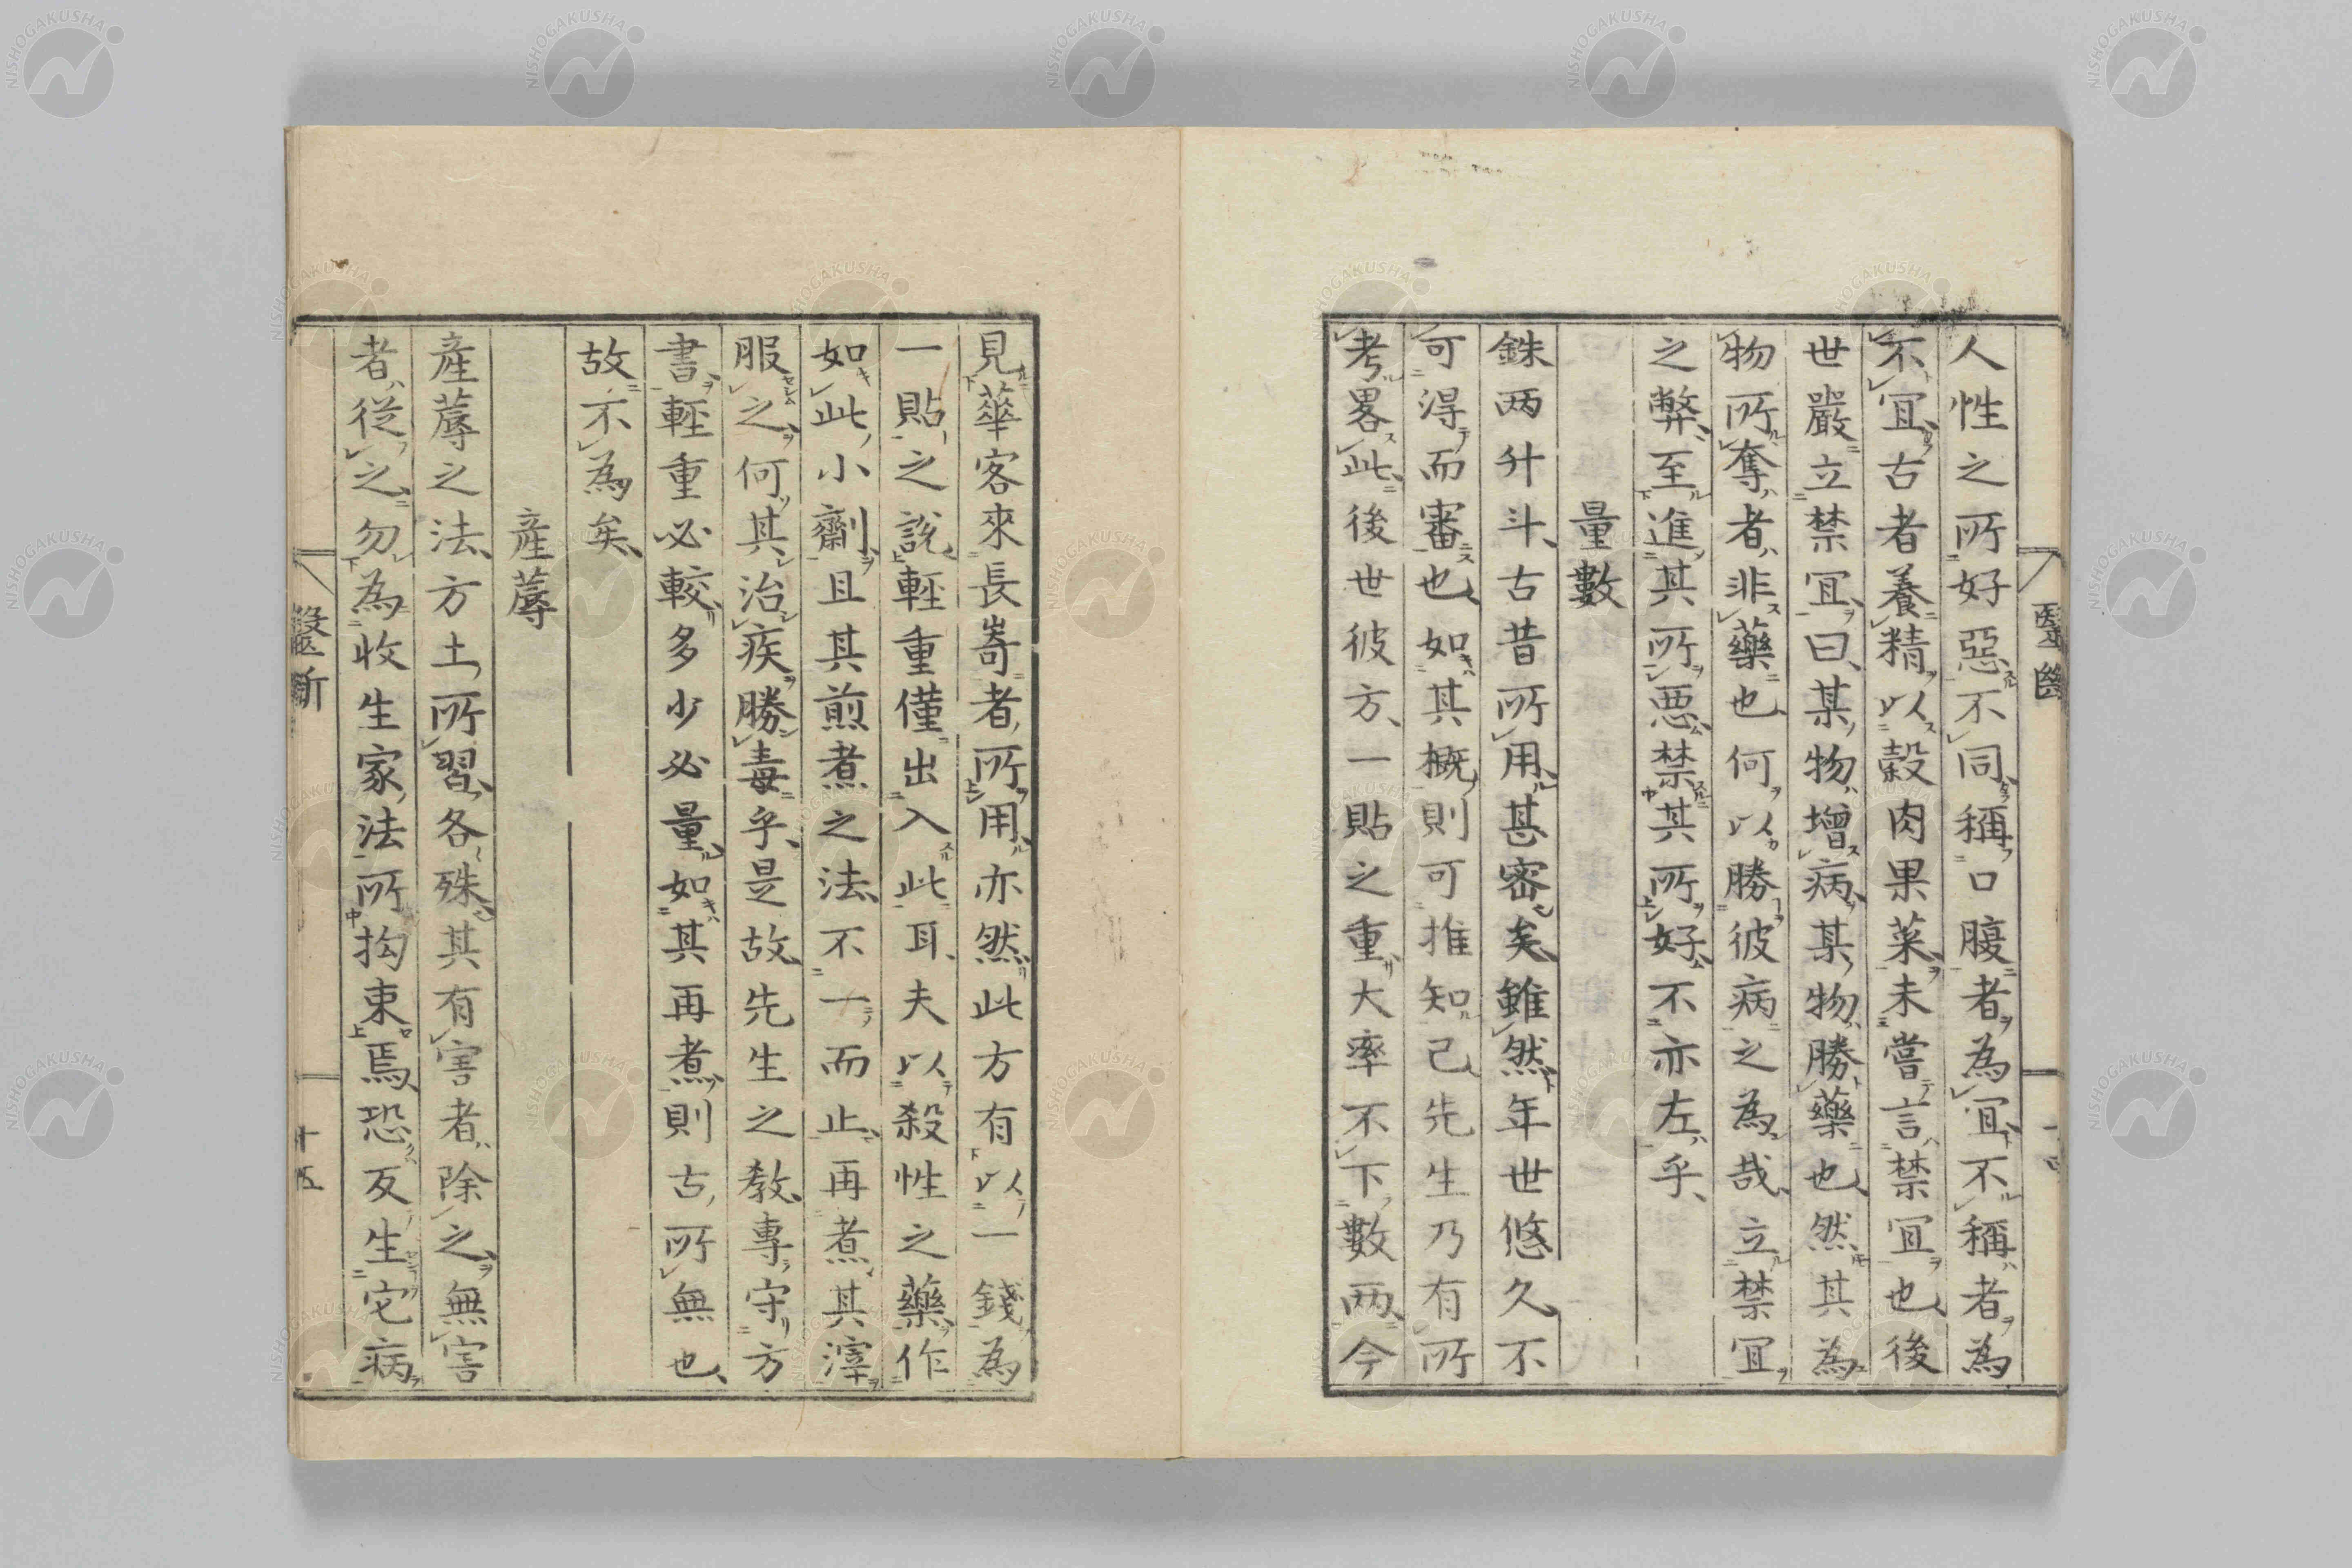 人性之所好惡不同稱口腹者為宜不稱者為
不宜古者養精以穀肉果菜未嘗言禁宜也後
世嚴立禁宜曰某物增病某物勝藥也然其為
物所奪者非藥也何以勝彼病之為哉立禁宜
之弊至進其所惡禁其所好不亦左乎
量數
銖两升斗古昔所用甚密矣雖然年世悠久不
可得而審也如其概則可推知已先生乃有所
考畧此後世彼方一貼之重大率不下數两今
見華客來長嵜者所用亦然此方有以一錢為
一貼之說輕重僅出入此耳夫以殺性之藥作
如此小劑且其煎煮之法不一而止再煮其滓
服之何其治疾勝毒乎是故先生之教專守方
書輕重必較多少必量如其再煮則古所無也
故不為矣
産蓐
産蓐之法方土所習各殊其有害者除之無害
者從之勿為收生家法所拘束焉恐反生它病
醫斷
十五
NISHOGAKUSHA